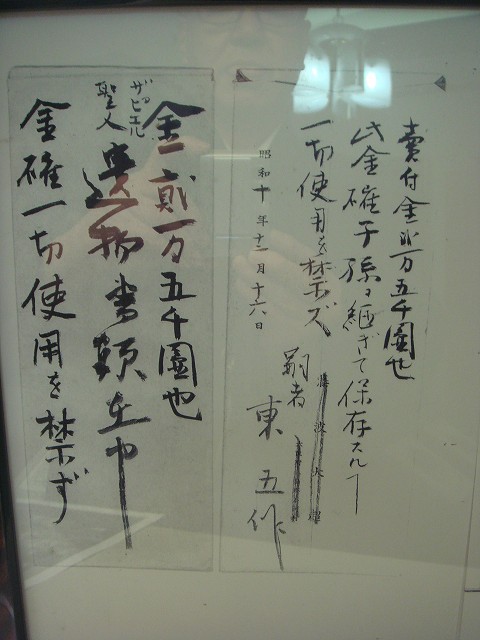 賣付金弐万五千圓也
此金確子孫ヲ継ぎて保存スルヿ
一切使用を禁ズ
昭和十年十二月十六日
嗣者
東五作
金貳万五千圓也
ザビエル
聖人
遺物書類在中
金確一切使用を禁ず